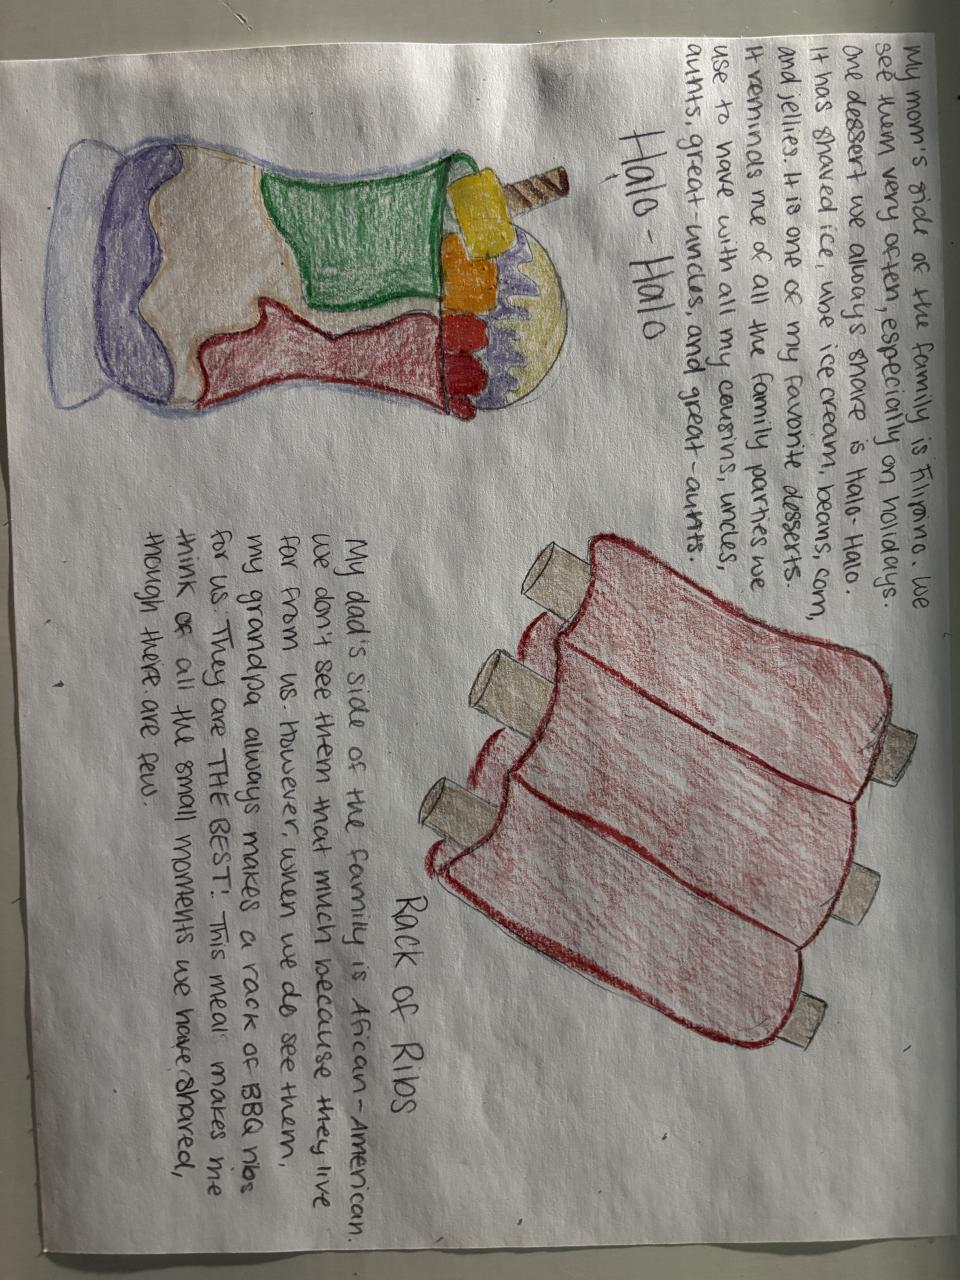 My mom's side of the family is Filipino. We
see them very often, especially on holidays.
One dessert we always share is Halo-Halo.
It has shaved ice, ube ice cream, beans, corn,
and jellies. It is one of my favorite desserts.
It reminds me of all the family parties we
use to have with all my cousins, uncles,
aunts, great-uncles, and great-aunts.
Halo-Halo
Rack of Ribs
My dad's side of the family is African-American.
We don't see them that much because they live
far from us. However, when we do see them,
my grandpa always makes a rack of BBQ ribs
for us. They are THE BEST! This meal makes me
think of all the small moments we have shared,
though there are few.